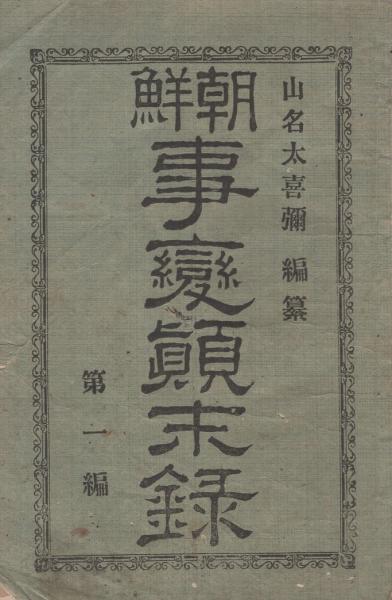 山名太喜彌 編纂
朝鮮
事變顚末録
第一編